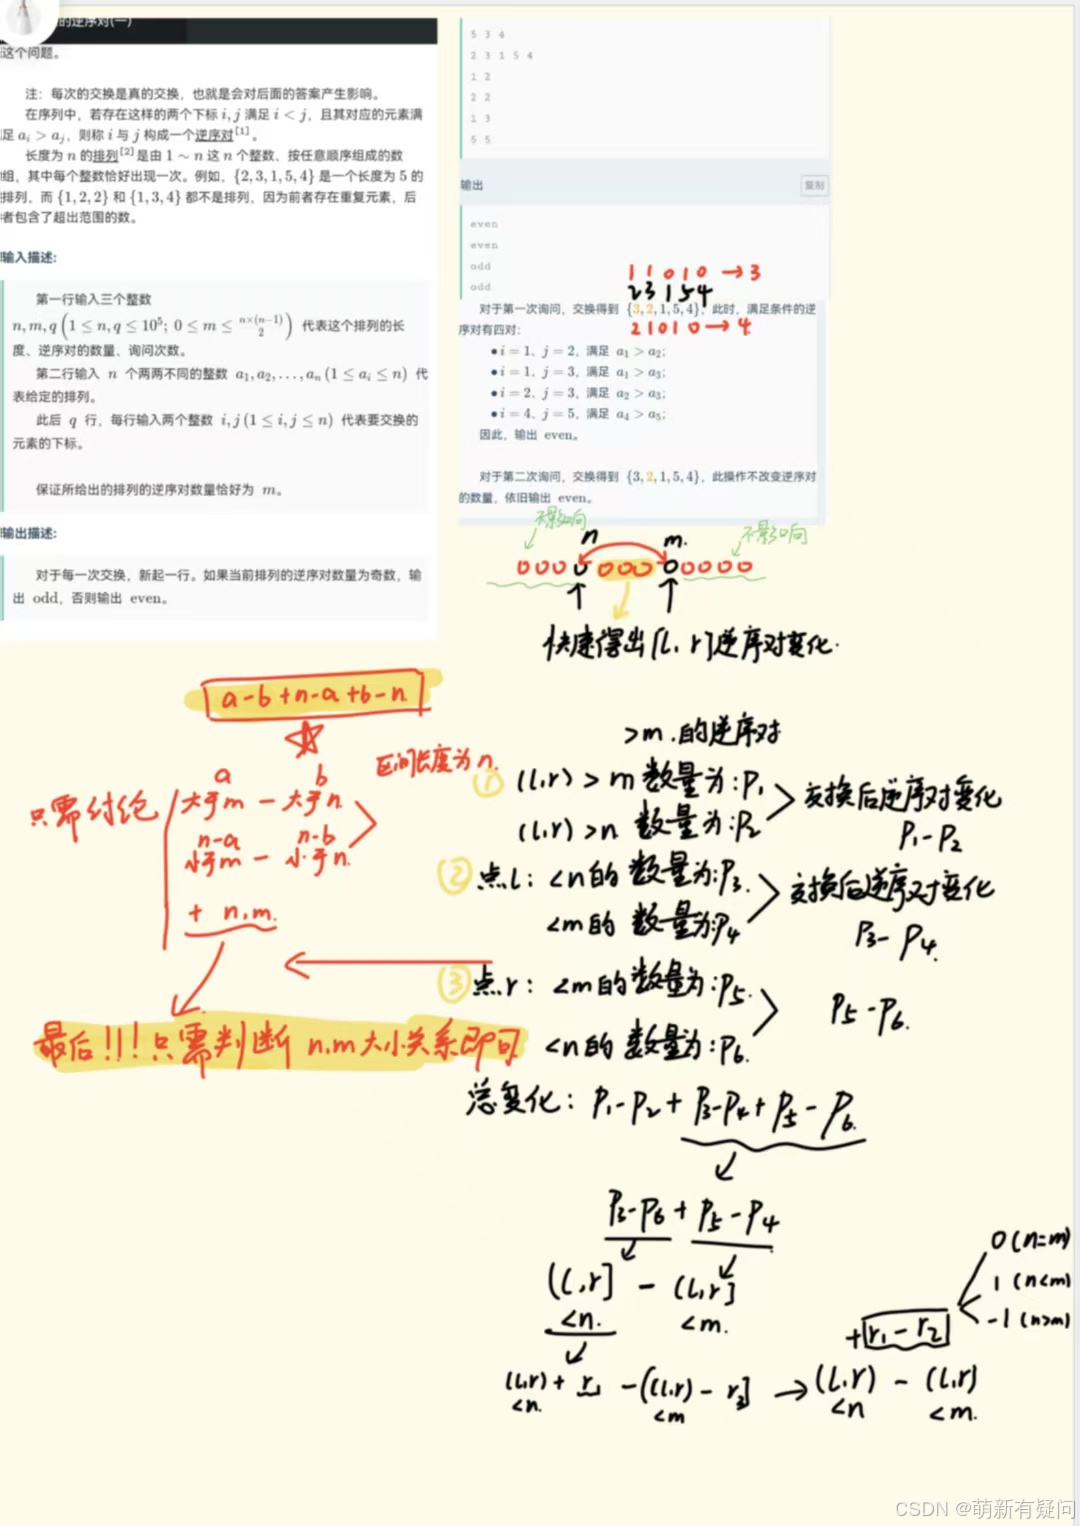 的逆序对(一)
这个问题。
注：每次的交换是真的交换，也就是会对后面的答案产生影响。
在序列中，若存在这样的两个下标 i, j 满足 i < j，且其对应的元素满
足 a_i > a_j，则称 i 与 j 构成一个逆序对[1]。
长度为 n 的排列[2]是由 1 ~ n 这 n 个整数、按任意顺序组成的数
组，其中每个整数恰好出现一次。例如，{2,3,1,5,4} 是一个长度为 5 的
排列，而 {1,2,2} 和 {1,3,4} 都不是排列，因为前者存在重复元素，后
者包含了超出范围的数。
输入描述:
第一行输入三个整数
n, m, q (1 ≤ n, q ≤ 10^5; 0 ≤ m ≤ n×(n−1)/2) 代表这个排列的长
度、逆序对的数量、询问次数。
第二行输入 n 个两两不同的整数 a_1, a_2, ..., a_n (1 ≤ a_i ≤ n) 代
表给定的排列。
此后 q 行，每行输入两个整数 i, j (1 ≤ i, j ≤ n) 代表要交换的
元素的下标。
保证所给出的排列的逆序对数量恰好为 m。
输出描述:
对于每一次交换，新起一行。如果当前排列的逆序对数量为奇数，输
出 odd，否则输出 even。
5 3 4
2 3 1 5 4
1 2
2 2
1 3
5 5
输出
复制
even
even
odd
odd
1 1 0 1 0 → 3
2 3 1 5 4
对于第一次询问，交换得到 {3,2,1,5,4}，此时，满足条件的逆
序对有四对：
2 1 0 1 0 → 4
• i = 1、j = 2，满足 a_1 > a_2；
• i = 1、j = 3，满足 a_1 > a_3；
• i = 2、j = 3，满足 a_2 > a_3；
• i = 4、j = 5，满足 a_4 > a_5；
因此，输出 even。
对于第二次询问，交换得到 {3,2,1,5,4}，此操作不改变逆序对
的数量，依旧输出 even。
不影响 n m. 不影响
快速得出[l,r]逆序对变化.
a-b+n-a+b-n
区间长度为n.
a b
只需讨论 大于m - 大于n.
n-a n-b
小于m - 小于n.
+ n.m.
最后!!!只需判断 n.m大小关系即可
>m.的逆序对
① (l,r) > m 数量为:P1
(l,r) >n 数量为:P2
交换后逆序对变化
P1-P2
② 点l: <n的 数量为:P3.
<m的 数量为:P4
交换后逆序对变化
P3-P4.
③ 点r: <m的 数量为:P5.
<n的 数量为:P6.
P5-P6.
总变化: P1-P2+P3-P4+P5-P6.
P3-P6+P5-P4
(l,r] - (l,r]
<n. <m.
0 (n=m)
1 (n<m)
-1 (n>m)
+r1-r2
(l,r)+r1 -((l,r)-r2] → (l,r) - (l,r)
<n. <m <n <m.
CSDN @萌新有疑问